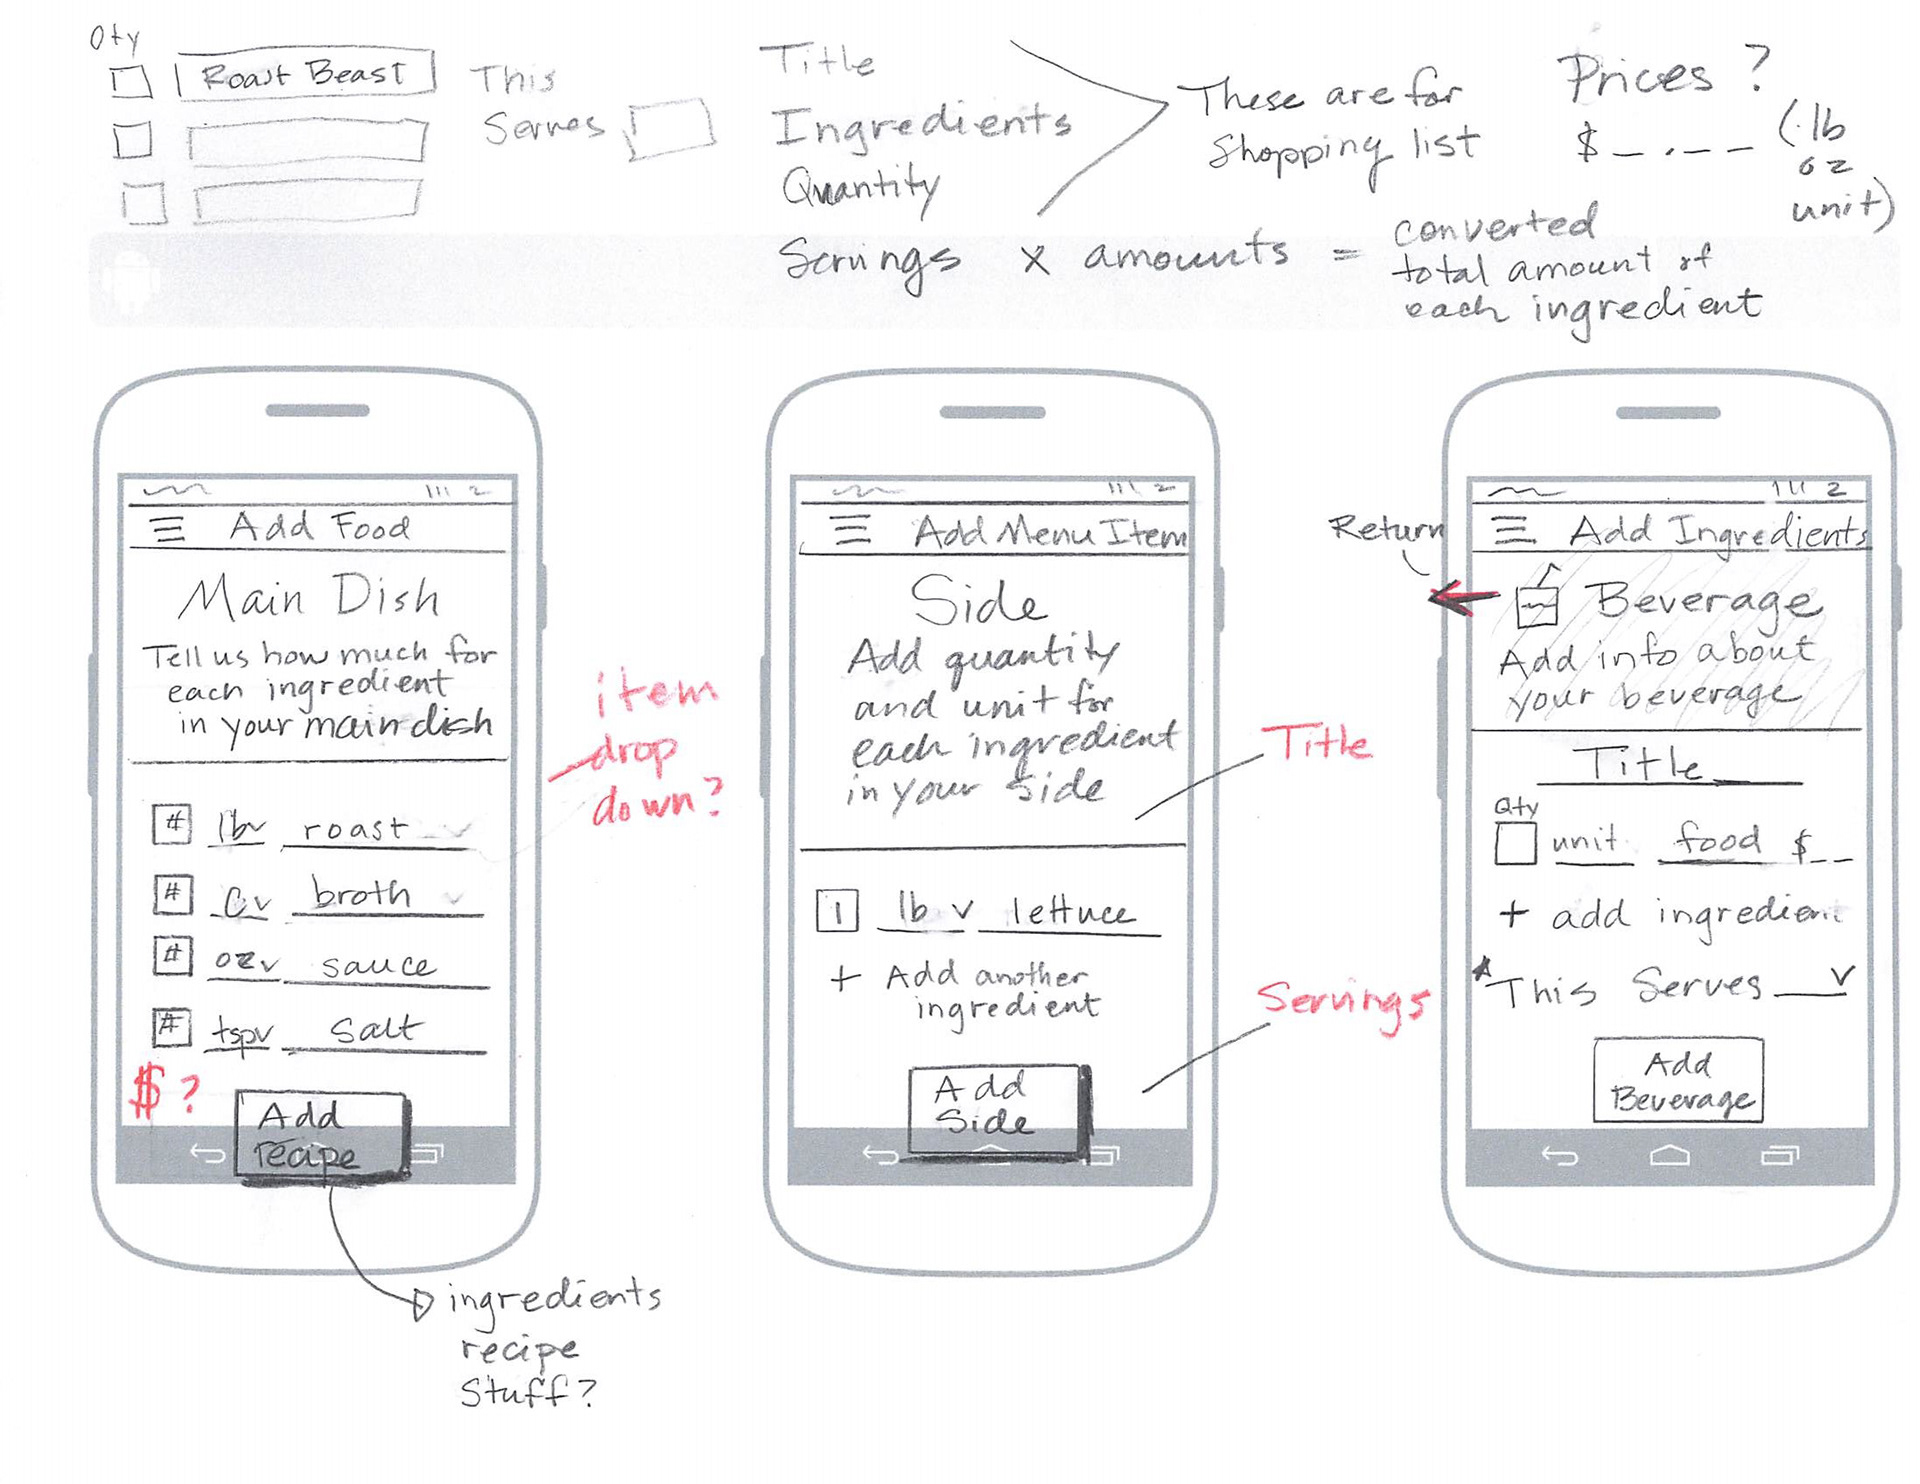 Qty
Roast Beast
This
Serves
Title
Ingredients
Quantity
These are for
Shopping list
Prices ?
$ _ . _ _ (lb
oz
unit)
Servings x amounts = converted
total amount of
each ingredient
Add Food
Main Dish
Tell us how much for
each ingredient
in your main dish
# lb v roast v
# C v broth v
# oz v sauce
# tsp v salt
$ ?
Add
recipe
item
drop
down?
ingredients
recipe
stuff?
Add Menu Item
Side
Add quantity
and unit for
each ingredient
in your side
Title
1 lb v lettuce
+ Add another
ingredient
Servings
Add
Side
Return
Add Ingredients
Beverage
Add info about
your beverage
Title
Qty
unit food $ _ _
+ add ingredient
This Serves v
Add
Beverage